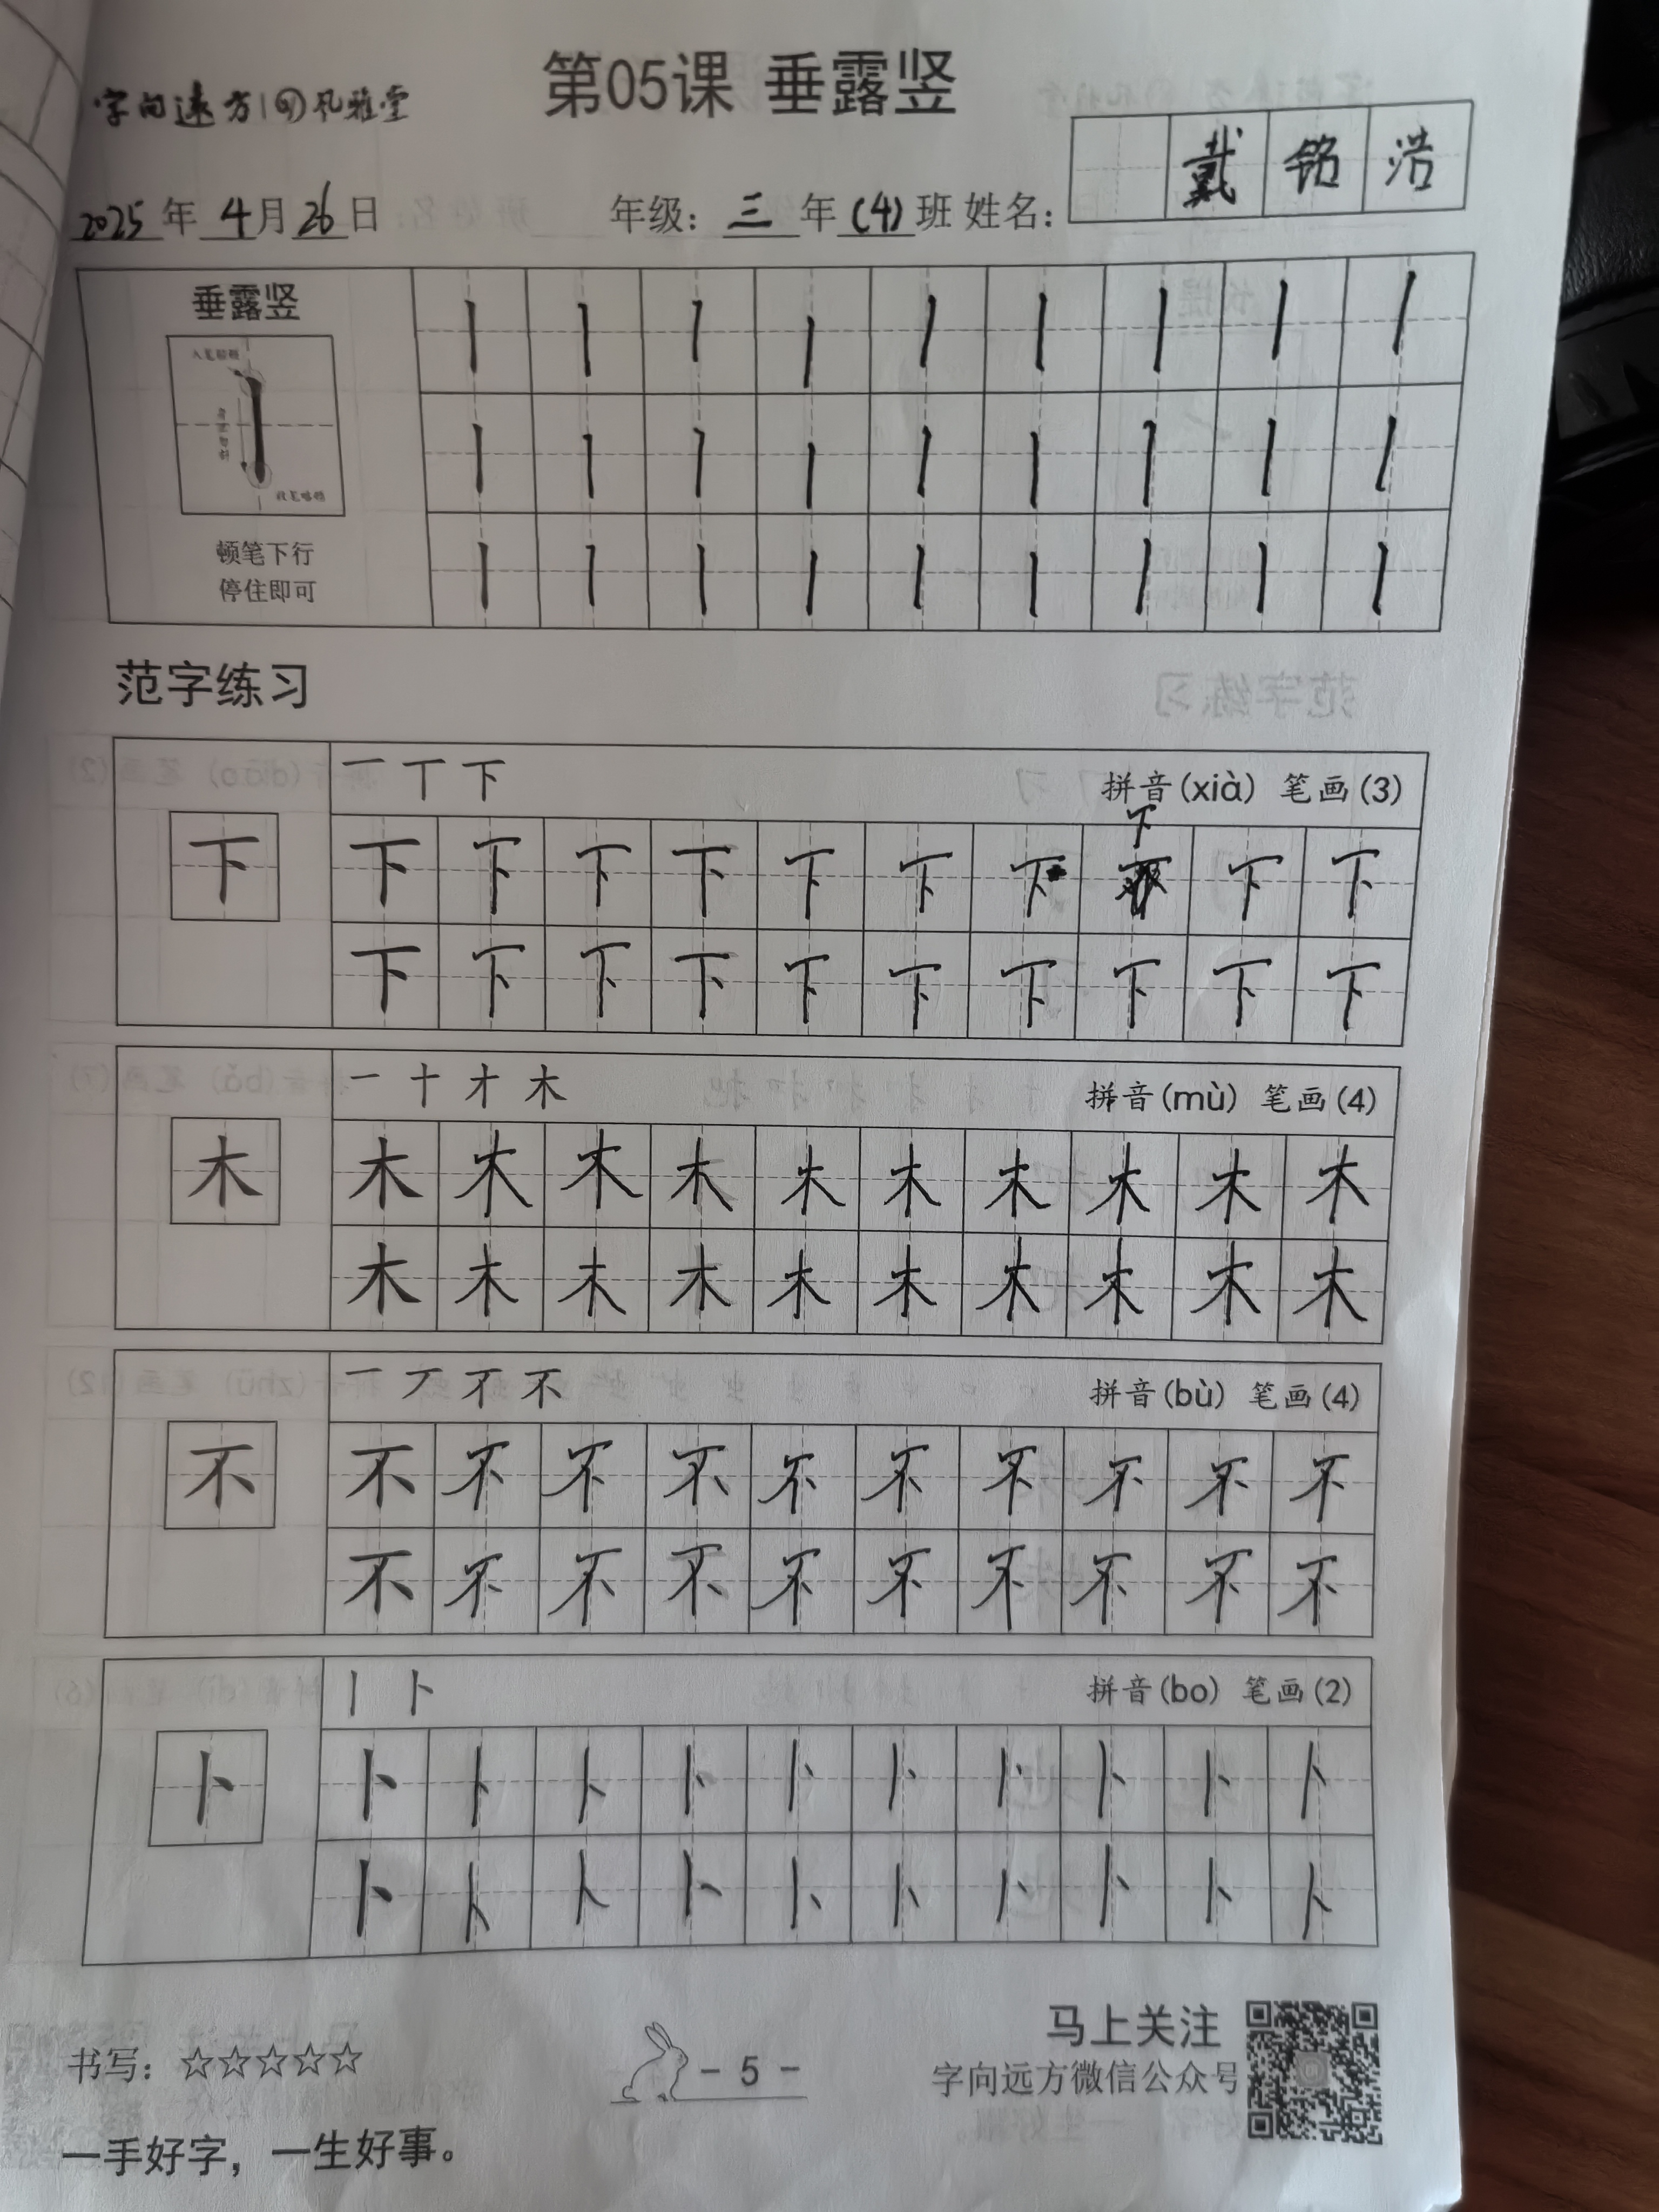 第05课 垂露竖
字向远方 孔雅堂
戴铭浩
2025年 4月26日 年级：三年(4)班 姓名：
垂露竖
入笔稍顿
收笔略顿
顿笔下行
停住即可
范字练习
一 丅 下 拼音(xià) 笔画(3)
下
下 下 下 下 下 下 下 下 下 下
下 下 下 下 下 下 下 下 下 下
一 十 才 木 拼音(mù) 笔画(4)
木
木 木 木 木 木 木 木 木 木 木
木 木 木 木 木 木 木 木 木 木
一 丆 不 不 拼音(bù) 笔画(4)
不
不 不 不 不 不 不 不 不 不 不
不 不 不 不 不 不 不 不 不 不
丨 卜 拼音(bo) 笔画(2)
卜
卜 卜 卜 卜 卜 卜 卜 卜 卜 卜
卜 卜 卜 卜 卜 卜 卜 卜 卜 卜
书写：☆☆☆☆☆
- 5 -
马上关注
字向远方微信公众号
一手好字，一生好事。